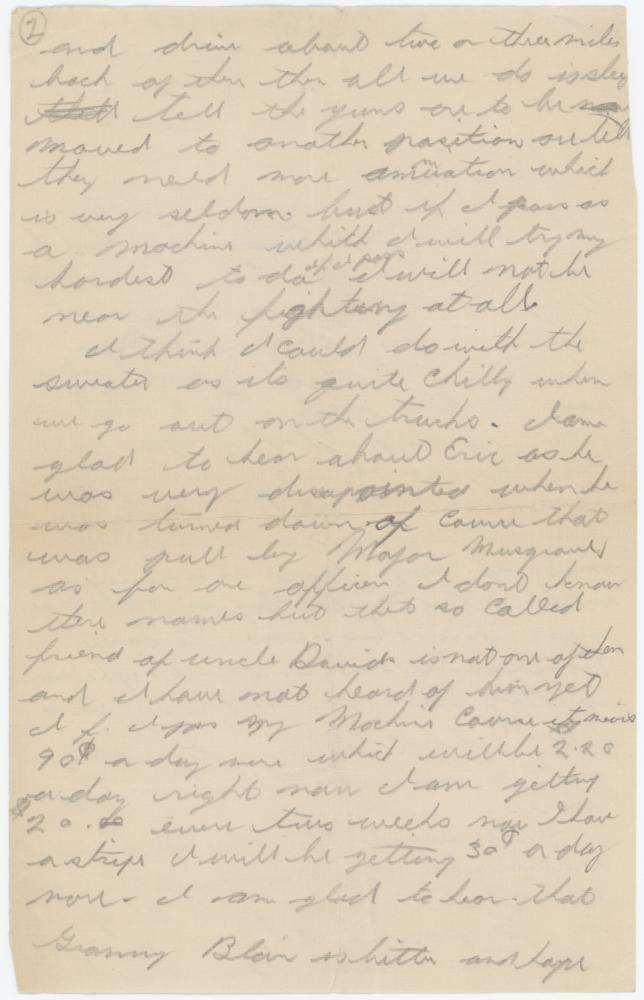 2
and drive about two or three miles
back of them then all we do is sleep
tell the guns are to be
moved to another position or tell
they need more amunation which
is very seldom. but if I pass as
a Machine which I will try my
hardest to do if I pass I will not be
near the fighting at all.
I think I could do with the
sweater as its quite Chilly when
we go out on the trucks. I am
glad to hear about Eric as he
was very disapointed when he
was turned down of Course that
was pull by Major Musgrave
as for are officers I dont know
there names but that so Called
friend of uncle Davids is not one of them
and I have not heard of him yet
If I pass my Machine Course it means
90¢ a day more which will be 2.20
a day right now I am getting
$20.00 every two weeks now I have
a stripe I will be getting 30¢ a day
more. I am glad to hear that
Granny Blair is better and hope